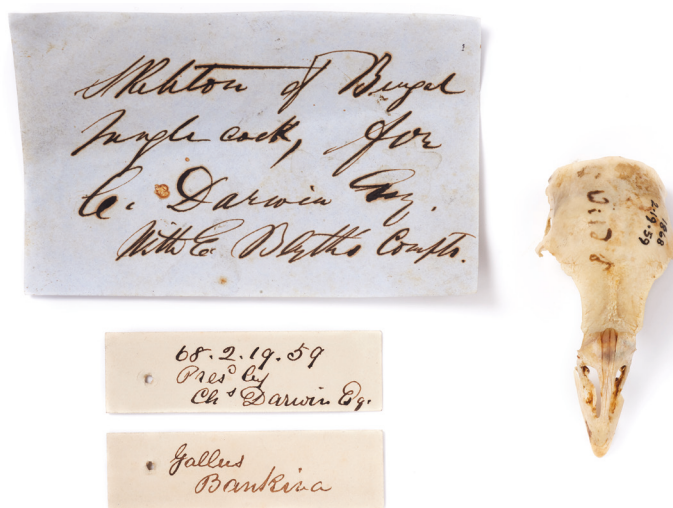 Skeleton of Bengal
Jungle cock, for
C. Darwin Esq.
With E. Blyth's Compts.
68.2.19.59
Presd by
Chs Darwin Esq.
Gallus
Bankiva
1868
2.19.59